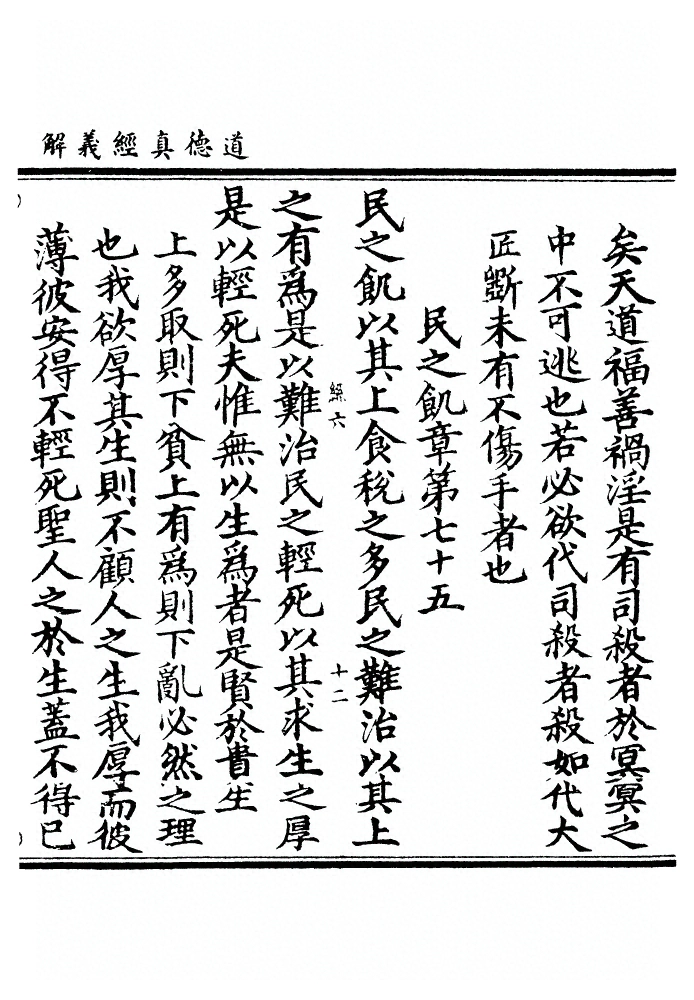 道德真經義解
矣天道福善禍淫是有司殺者於冥冥之
中不可逃也若必欲代司殺者殺如代大
匠斲未有不傷手者也
民之飢章第七十五
民之飢以其上食稅之多民之難治以其上
絲六
十二
之有爲是以難治民之輕死以其求生之厚
是以輕死夫惟無以生爲者是賢於貴生
上多取則下貧上有爲則下亂必然之理
也我欲厚其生則不顧人之生我厚而彼
薄彼安得不輕死聖人之於生蓋不得已